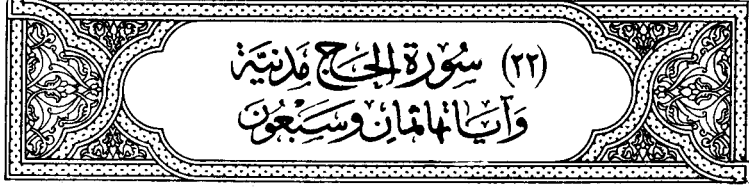 (٢٢) سُورَة الحَجّ مَدَنِيَّة
وَآيَاتهَا ثَمَان وَسَبْعُون